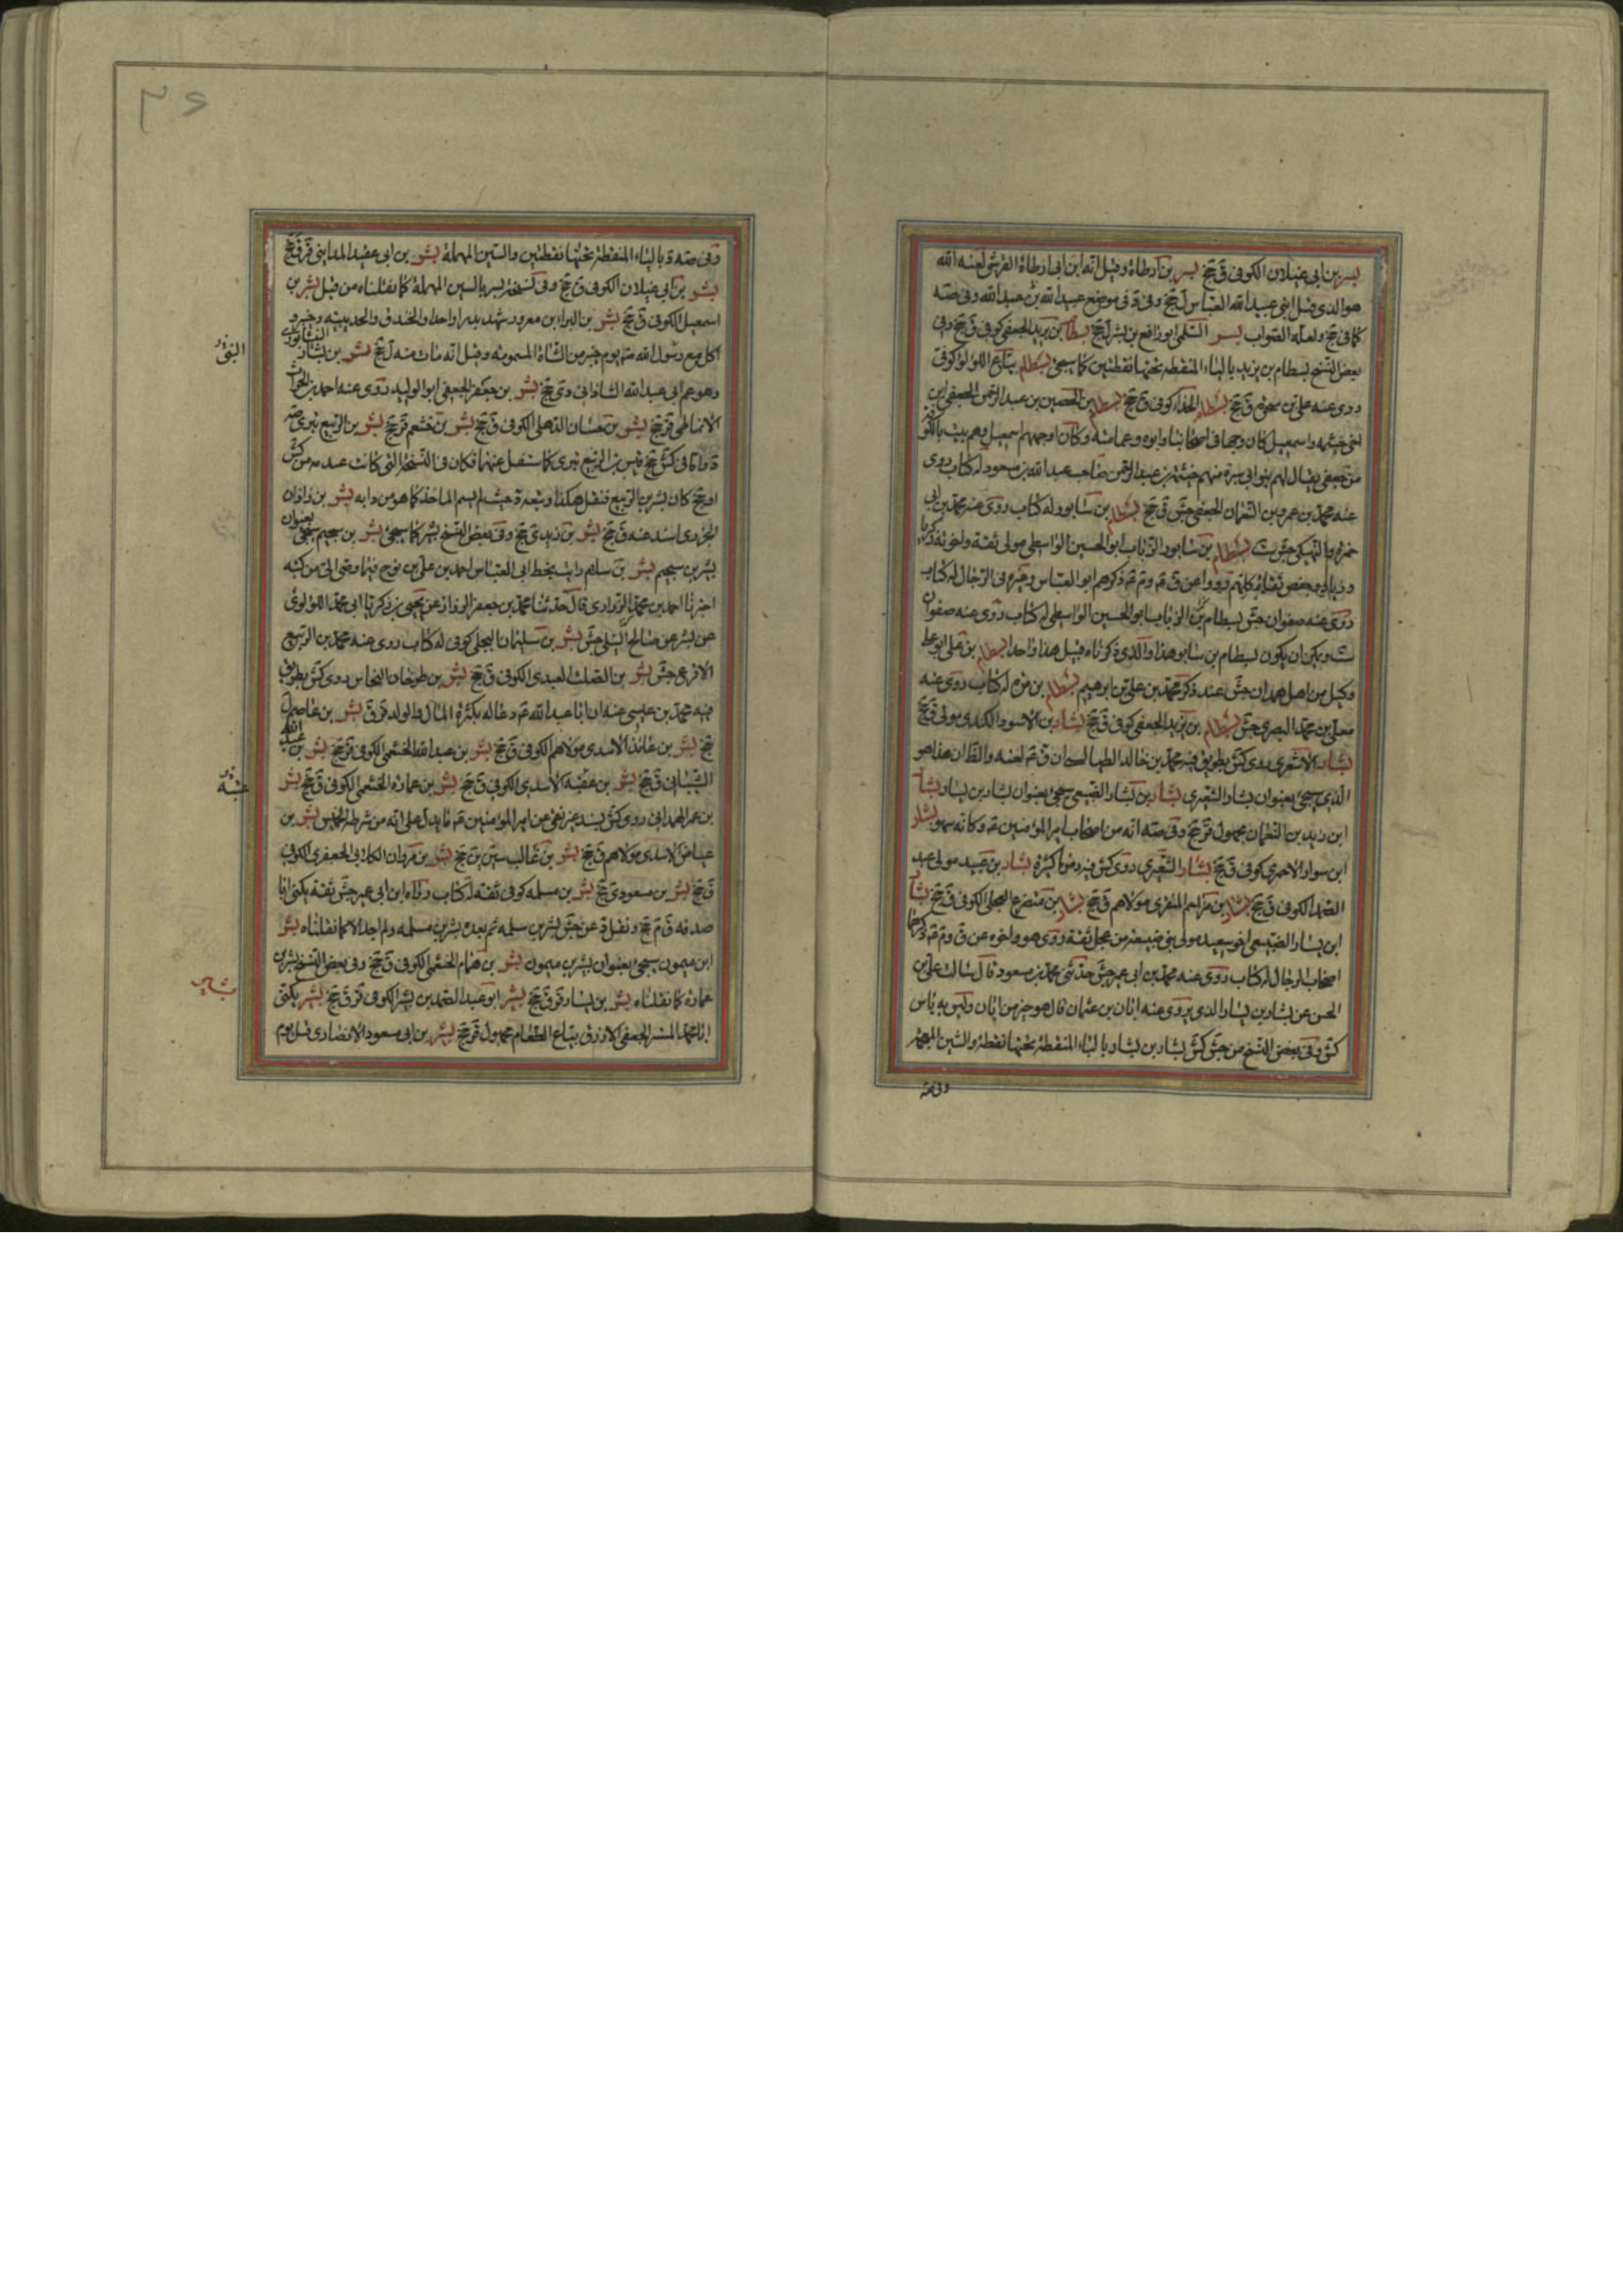 بسر بن ابي غيلان الكوفي ق جخ بسر بن ارطاة وقيل انه ابن ابي ارطاة القرشي لعنه الله
هو الذي قتل ابني عبيد الله العباس ل جخ وفي د في موضع عبيد الله بن عبد الله وفي صته
كما في جخ ولعله الصواب بسر السلمي ابو رافع بن بشر ل جخ بسطام بن يزيد الجعفي كوفي ق جخ وفي
بعض النسخ بسطام بن يزيد بالياء المنقطة تحتها نقطتين كما سيجئ بسطام بياع اللؤلؤ كوفي
روى عنه علي بن ق جخ بسطام الحذاء كوفي ق جخ بسطام بن الحصين بن عبد الرحمن الجعفي ابن
اخي خيثمه واسمعيل كان وجها في اصحابنا وابوه وعمامته وكان اوجههم اسمعيل وهم بيت بالكوفة
من جعفي يقال لهم بنو ابي سبرة منهم خيثمة بن عبد الرحمن صاحب عبد الله بن مسعود له كتاب روى
عنه محمد بن عمرو بن النعمان الجعفي جش ق جخ بسطام بن سابور له كتاب روى عنه محمد بن ابي
حمزة بسطام بن سابور الزيات ابو الحسين الواسطي مولى ثقة واخوته زكريا
وزياد وحفص ثقات كلهم رووا عن ق م و م م ذكرهم ابو العباس وغيره في الرجال له كتاب
روى عنه صفوان جش بسطام بن الزيات ابو الحسين الواسطي له كتاب روى عنه صفوان
ست ويمكن ان يكون بسطام بن سابور هذا والذي ذكرناه قبل هذا واحدا بسطام بن علي ابو علي
وكيل من اهل همدان جش عند ذكر محمد بن علي بن ابرهيم بسطام بن مره له كتاب روى عنه
معلى بن محمد البصري جش بسطام بن يزيد الجعفي كوفي ق جخ بشار بن الاسود الكندي مولى ق جخ
بشار الاشعري روى كش بطريق فيه محمد بن خالد الطيالسي ان ق م لعنه والظ ان هذا هو
الذي سيجئ بعنوان بشار الشعيري بشار بن بشار الضبعي سيجئ بعنوان بشار بن يسار بشار
ابن زيد بن النعمان مجهول قر جخ وفي صته انه من اصحاب امير المؤمنين م وكانه سهو بشار
ابن سوار الاحمري كوفي ق جخ بشار الشعيري روى كش فيه ذموما كثيرة بشار بن عبيد مولى عبد
الصمد الكوفي ق جخ بشار بن مزاحم المنقري مولاهم ق جخ بشار بن العجلي الكوفي ق جخ بشار
ابن يسار الضبيعي اخو سعيد مولى بني ضبيعة من عجل ثقة روى هو واخوه عن ق و م م ذكرهما
اصحاب الرجال له كتاب روى عنه محمد بن ابي عمير جش حدثني محمد بن مسعود قال سالت علي بن
الحسن عن بشار بن يسار الذي يروي عنه ابان بن عثمان قال هو خير من ابان وليس به باس
كش وفي بعض النسخ من جش كش يسار بن بشار بالباء المنقطة تحتها نقطة والشين المعجمة
وفي صته
٣٤
وفي صته د بالياء المنقطة تحتها نقطتين والسين المهملة بشر بن ابي عقبة المدايني قر ق جخ
بشر بن ابي غيلان الكوفي ق جخ وفي نسخة بسر بالسين المهملة كما نقلناه من قبل بشر بن
اسمعيل الكوفي ق جخ بشر بن البراء بن معرور شهد بدرا واحدا والخندق والحديبيه وخيبر و
اكل مع رسول الله صم يوم خيبر من الشاة المسمومة وقيل انه مات منه ل جخ بشر بن بشار النيشابوري
وهو عم ابي عبد الله الشاذاني دي جخ بشر بن جعفر الجعفي ابو الوليد روى عنه احمد بن الحرث
الانماطي قر جخ بشر بن حسان الذهلي الكوفي ق جخ بشر بن خثعم قر جخ بشر بن الربيع تبرى
بن الربيع تبرى كما سننقل عنهما فكان في النسخة التي كانت عنده من كش
او جخ كان بشر بن الربيع فنقل هكذا وتبعه د حيث لم يسم الماخذ كما هو من دابه بشر بن زاذان
الجزري اسند عنه ق جخ بشر بن زيد ي جخ وفي بعض النسخ بشير كما سيجئ بشر بن سحيم سيجئ بعنوان
بشر بن سحيم بشر بن سلام رايت بخط ابي العباس احمد بن علي بن نوح فيما وصى الي من كتبه
اخبرنا احمد بن محمد الزراري قال حدثنا محمد بن جعفر الرزاز عن يحيى بن زكريا ابي محمد اللؤلؤي
عن بشر عن صالح النيلي جش بشر بن سليمان البجلي كوفي له كتاب روى عنه محمد بن الربيع
الاقرع جش بشر بن الصلت العبدي الكوفي ق جخ بشر بن طرخان النخاس روى كش بطريق
فيه محمد بن عيسى عنه ان ابا عبد الله م دعا له بكثرة المال والولد قر ق بشر بن عاصم ل
جخ بشر بن عائذ الاسدي مولاهم الكوفي ق جخ بشر بن عبد الله الخثعمي الكوفي قر جخ بشر بن عبد الله
الشيباني ق جخ بشر بن عقبة الاسدي الكوفي ق جخ بشر بن عمارة الخثعمي الكوفي ق جخ بشر
بن عمر الهمداني روى كش بسند عن امير المؤمنين م ما يدل على انه من شرطة الخميس بشر بن
عياض الاسدي مولاهم ق جخ بشر بن غالب سين ين جخ بشر بن مروان الكلابي الجعفري الكوفي
ق جخ بشر بن مسعود ي جخ بشر بن مسلمه كوفي ثقة له كتاب رواه ابن ابي عمير جش ثقة يكنى ابا
صدقه ق م جخ ونقل د عن جش بشر بن سلمه ثم بعده بشر بن مسلمه ولم اجد الا كما نقلناه بشر
ابن ميمون سيجئ بعنوان بشر بن ميمون بشر بن همام الخثعمي الكوفي ق جخ وفي بعض النسخ بشر بن
عمارة كما نقلناه بشر بن يسار قر ق جخ بشر ابو عبد الصمد بن بشر الكوفي قر ق جخ بشر يكنى
ابا محمد المستنير الجعفي الازرق بياع الطعام مجهول قر جخ بشير بن ابي مسعود الانصاري قتل يوم
بشير